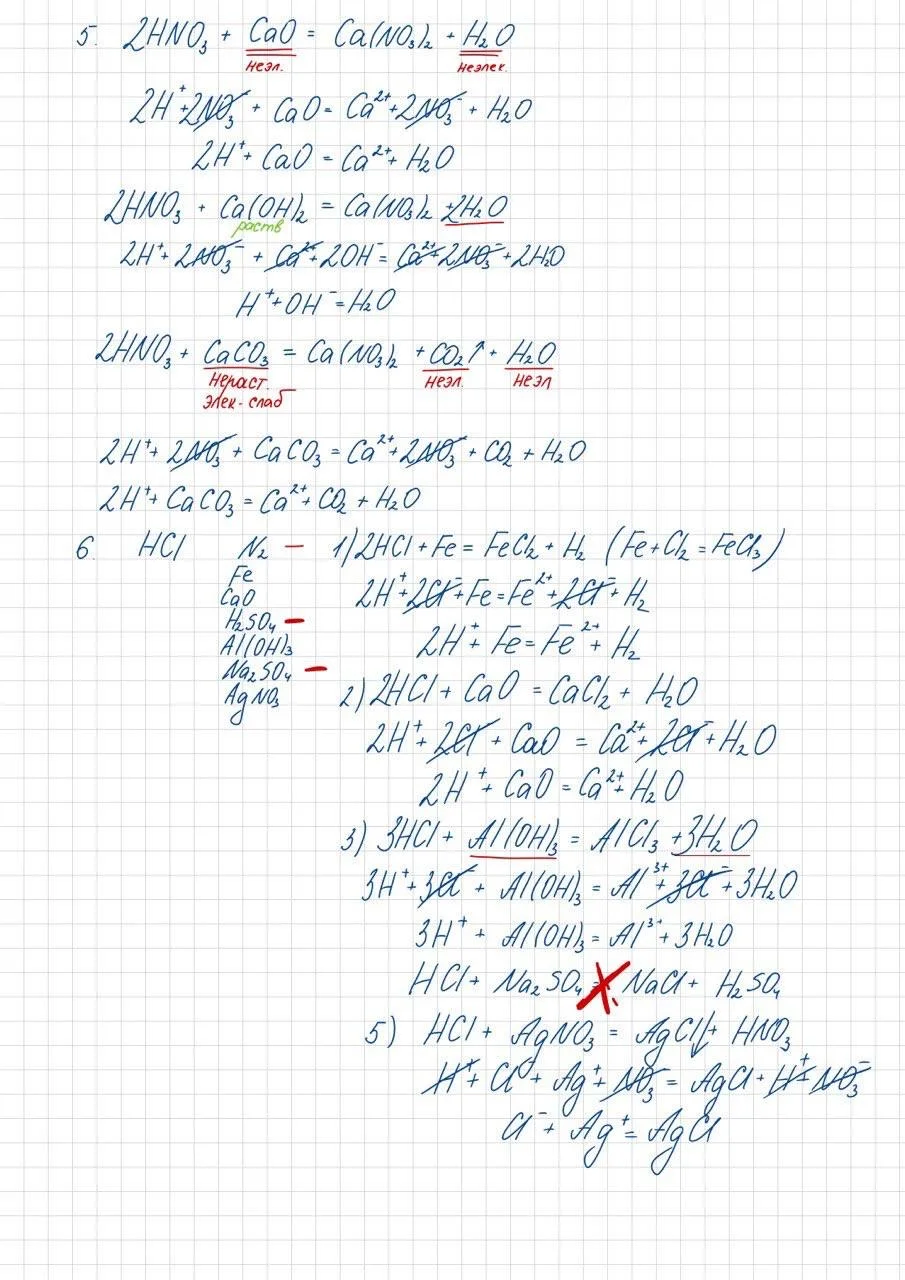 5. 2HNO₃ + CaO = Ca(NO₃)₂ + H₂O
неэл. неэлек.
2H⁺ + 2NO₃⁻ + CaO = Ca²⁺ + 2NO₃⁻ + H₂O
2H⁺ + CaO = Ca²⁺ + H₂O
2HNO₃ + Ca(OH)₂ = Ca(NO₃)₂ + 2H₂O
раств
2H⁺ + 2NO₃⁻ + Ca²⁺ + 2OH⁻ = Ca²⁺ + 2NO₃⁻ + 2H₂O
H⁺ + OH⁻ = H₂O
2HNO₃ + CaCO₃ = Ca(NO₃)₂ + CO₂↑ + H₂O
нераст. неэл. неэл
элек-слаб
2H⁺ + 2NO₃⁻ + CaCO₃ = Ca²⁺ + 2NO₃⁻ + CO₂ + H₂O
2H⁺ + CaCO₃ = Ca²⁺ + CO₂ + H₂O
6. HCl N₂ — 1) 2HCl + Fe = FeCl₂ + H₂ (Fe + Cl₂ = FeCl₃)
Fe
CaO
H₂SO₄ —
Al(OH)₃
Na₂SO₄ —
AgNO₃
2H⁺ + 2Cl⁻ + Fe = Fe²⁺ + 2Cl⁻ + H₂
2H⁺ + Fe = Fe²⁺ + H₂
2) 2HCl + CaO = CaCl₂ + H₂O
2H⁺ + 2Cl⁻ + CaO = Ca²⁺ + 2Cl⁻ + H₂O
2H⁺ + CaO = Ca²⁺ + H₂O
3) 3HCl + Al(OH)₃ = AlCl₃ + 3H₂O
3H⁺ + 3Cl⁻ + Al(OH)₃ = Al³⁺ + 3Cl⁻ + 3H₂O
3H⁺ + Al(OH)₃ = Al³⁺ + 3H₂O
HCl + Na₂SO₄ = NaCl + H₂SO₄
5) HCl + AgNO₃ = AgCl↓ + HNO₃
H⁺ + Cl⁻ + Ag⁺ + NO₃⁻ = AgCl + H⁺ + NO₃⁻
Cl⁻ + Ag⁺ = AgCl